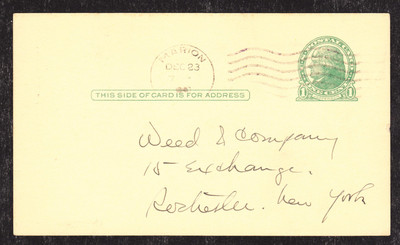 MARION
DEC 23
THIS SIDE OF CARD IS FOR ADDRESS
Weed & Company
15 Exchange.
Rochester. New York